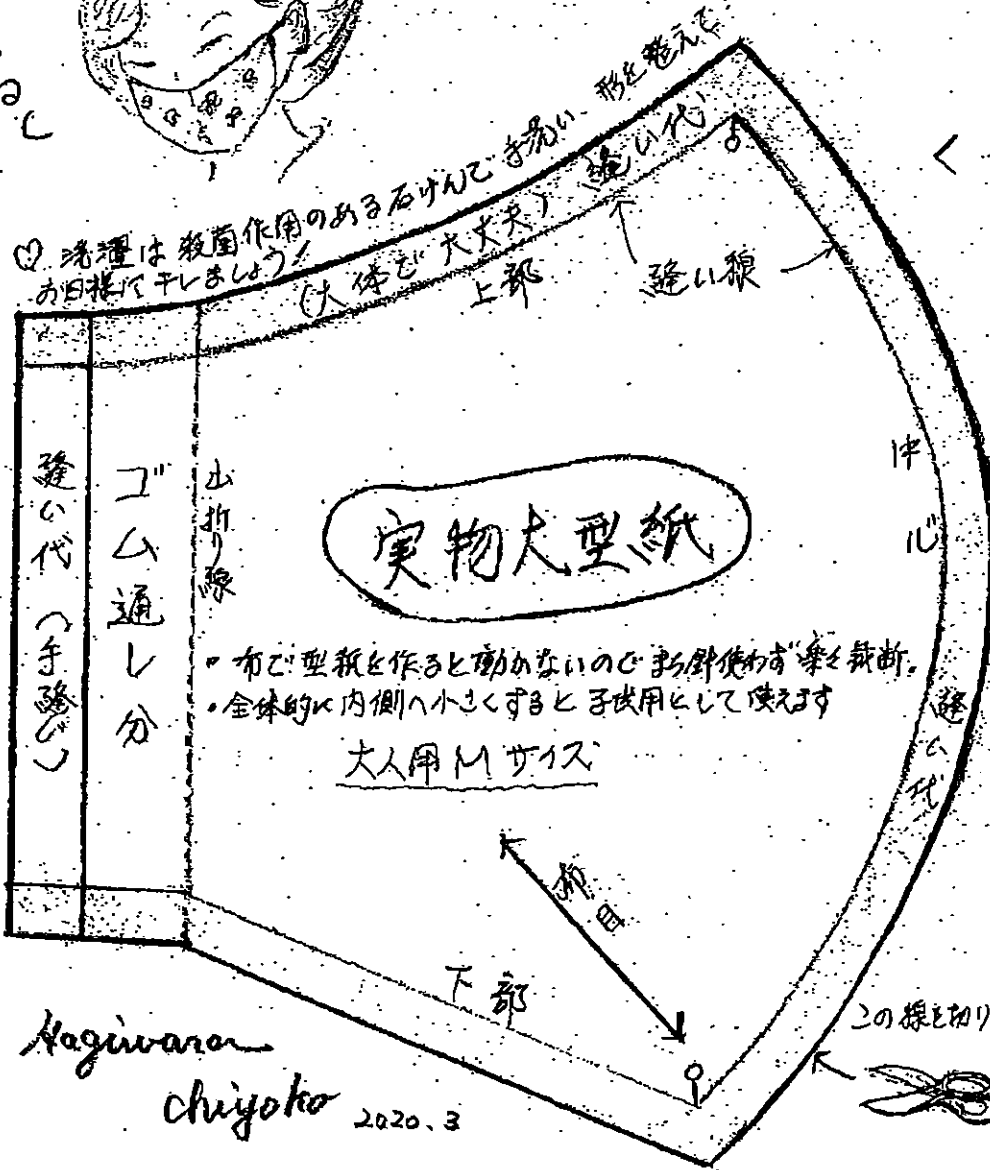 ♡ 洗濯は殺菌作用のある石けんで手洗い、形を整えて
お日様に干しましょう!
(大体で大丈夫)
縫い代
上部
縫い線
中心
縫い代(手縫い)
ゴム通し分
山折り線
実物大型紙
・布で型紙を作ると動かないのでまち針使わず楽々裁断。
・全体的に内側へ小さくすると子供用として使えます
大人用Mサイズ
縫い代
布目
下部
この線を切り
Hagiwara
chiyoko 2020.3